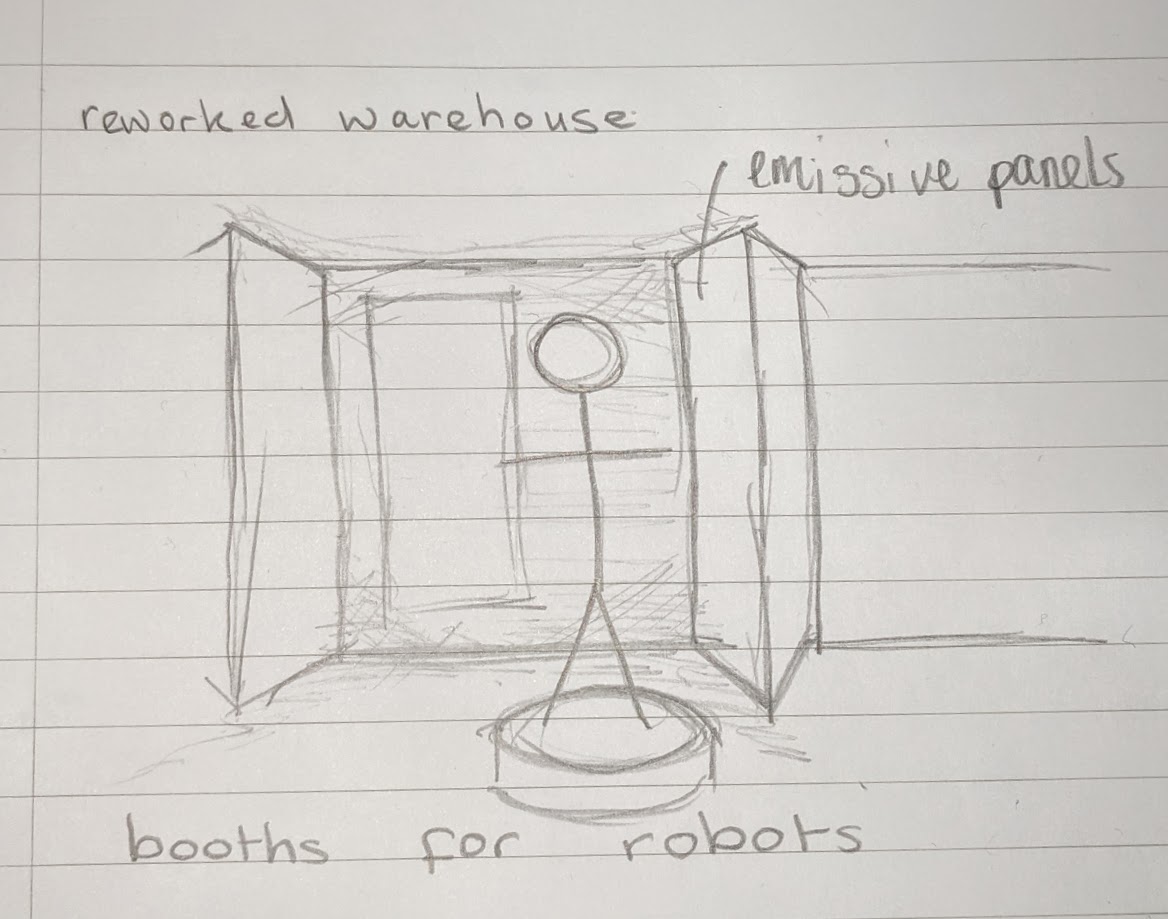 reworked warehouse
emissive panels
booths for robots